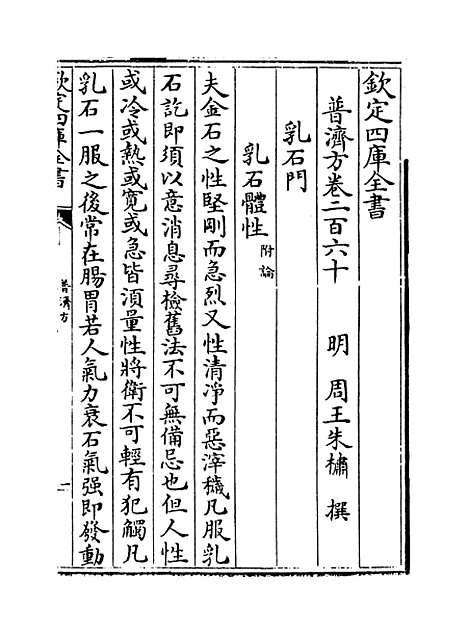 欽定四庫全書
普濟方卷二百六十
明 周王朱橚 撰
乳石門
乳石體性附論
夫金石之性堅剛而急烈又性清凈而惡滓穢凡服乳
石訖即須以意消息尋檢舊法不可無備忌也但人性
或冷或熱或寛或急皆湏量性將衛不可輕有犯觸凡
乳石一服之後常在腸胃若人氣力衰石氣强即發動
欽定四庫全書
普濟方
一